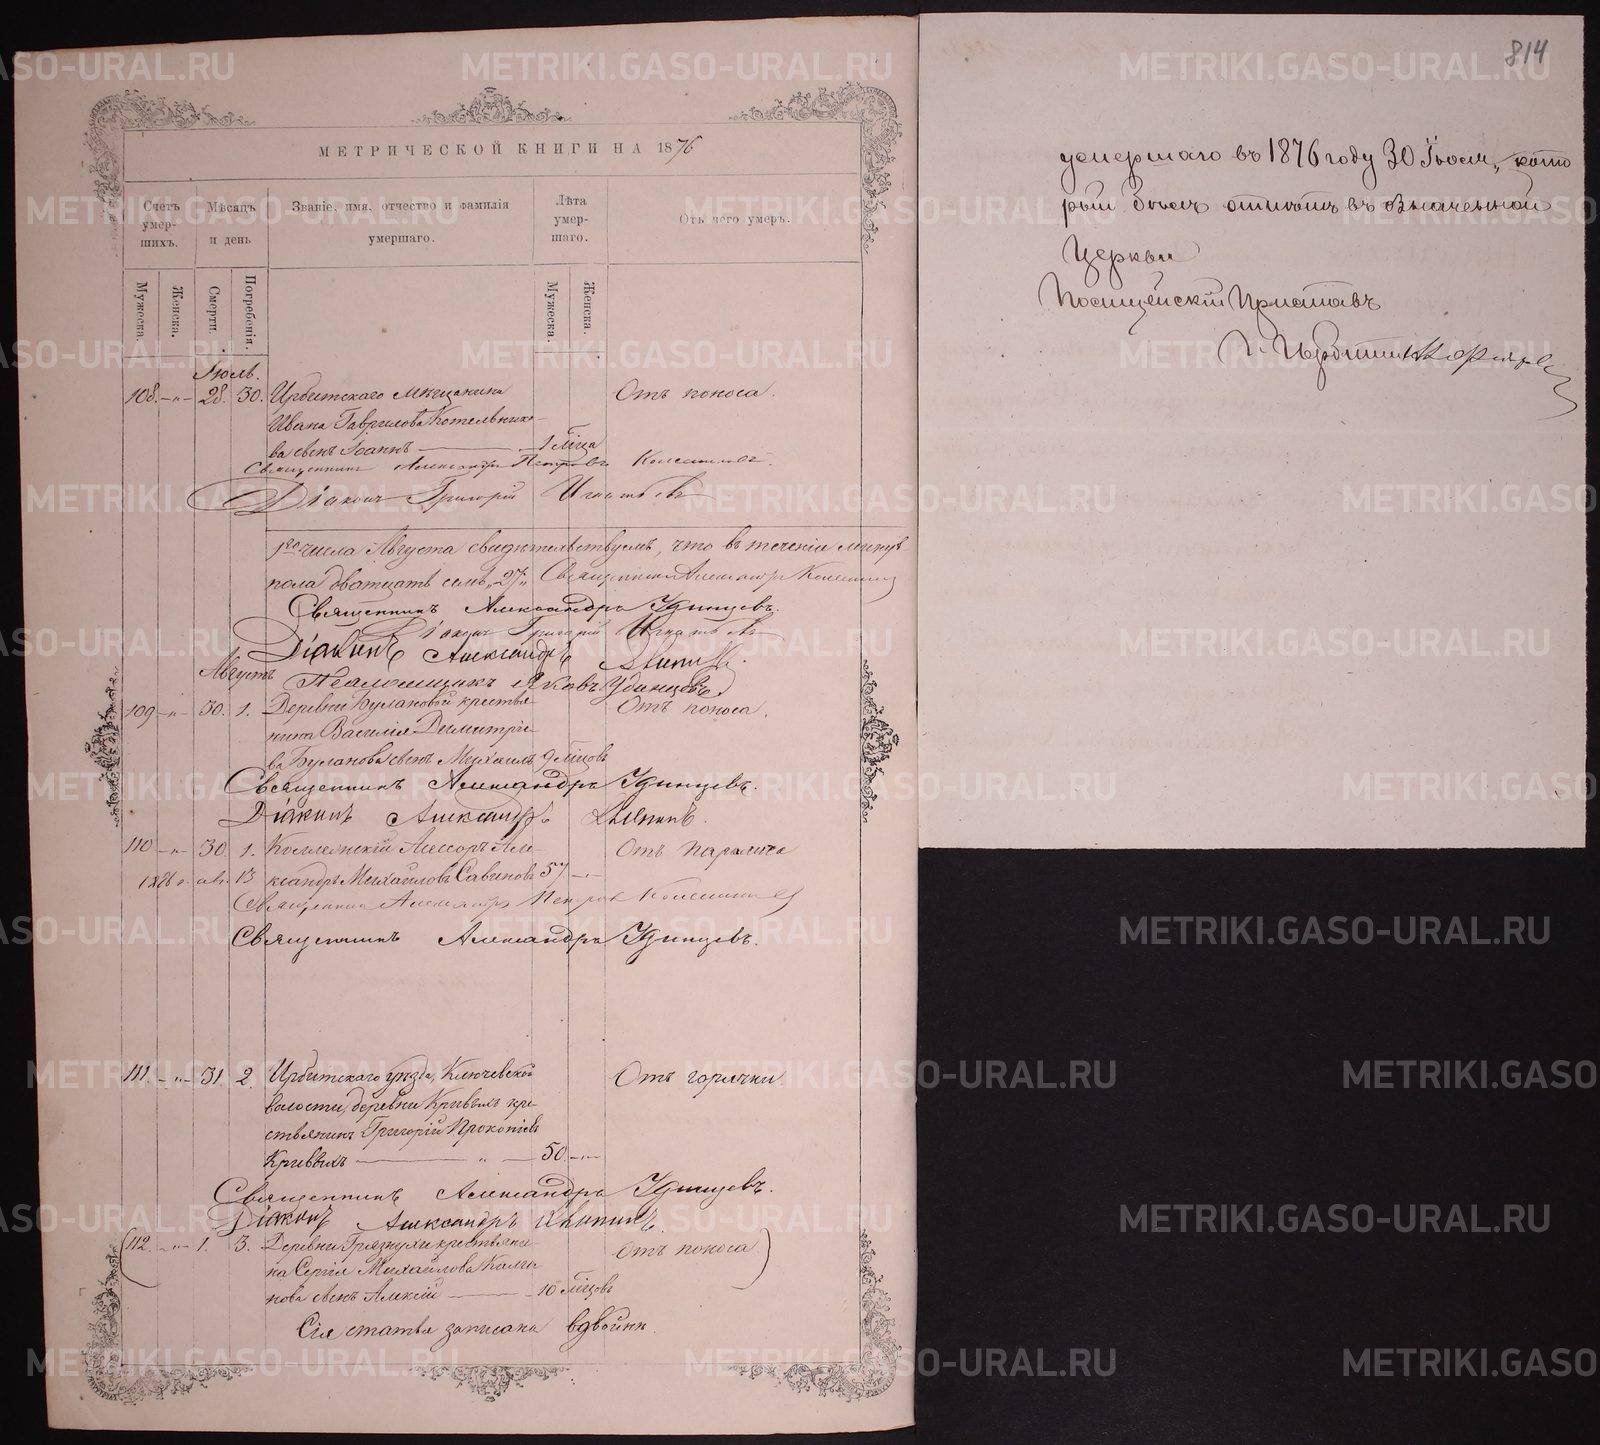 МЕТРИЧЕСКОЙ КНИГИ НА 1876
Счетъ умер-шихъ.
Мѣсяцъ и день
Званіе, имя, отчество и фамилія умершаго.
Лѣта умер-шаго.
Отъ чего умеръ.
Мужеска.
Женска.
Смерти.
Погребенія.
Мужеска.
Женска.
Іюль.
108. -"- 28. 30. Ирбитскаго мѣщанина Отъ поноса.
Ивана Гаврилова Котельнико-
ва сынъ Іоаннъ 1 м҃ца
Священникъ Александръ Петровъ
Діаконъ Григорій Игнатьевъ
1го числа Августа свидѣтельствуемъ, что въ теченіи минув
пола двадцать семь "27" Священникъ Александръ
Священникъ Александръ Удинцевъ.
Діаконъ Григорій Игнатьевъ
Діаконъ Александръ
Августъ
Псаломщикъ Яковъ Удинцевъ
109 -"- 30. 1. Деревни Булановой крестья- Отъ поноса.
нина Василія Димитріе-
ва Буланова сынъ Михаилъ 9 м҃цовъ
Священникъ Александръ Удинцевъ.
Діаконъ Александръ
110 -"- 30. 1. Коллежскій Ассесоръ Але- Отъ паралича
13 ксандръ Михайловъ Савиновъ 57 -"-
Священникъ Александръ Петровъ
Священникъ Александръ Удинцевъ.
111. -"- 31. 2. Ирбитскаго уѣзда, Ключевской Отъ горячки.
волости, деревни Кривыхъ кре-
стьянинъ Григорій Прокопіевъ
Кривыхъ " 50. -"-
Священникъ Александръ Удинцевъ.
Діаконъ Александръ
(112. -"- 1. 3. Деревни Грязнухи крестьяни- Отъ поноса)
на Сергія Михайлова Калга
нова сынъ Алексій 10 м҃цовъ
Сія статья записана вдвойнѣ.
814
умершаго въ 1876 году 30 Іюля, кото
рый былъ отпѣтъ въ означенной
Церкви
Полицейскій Приставъ
г. Ирбити
METRIKI.GASO-URAL.RU